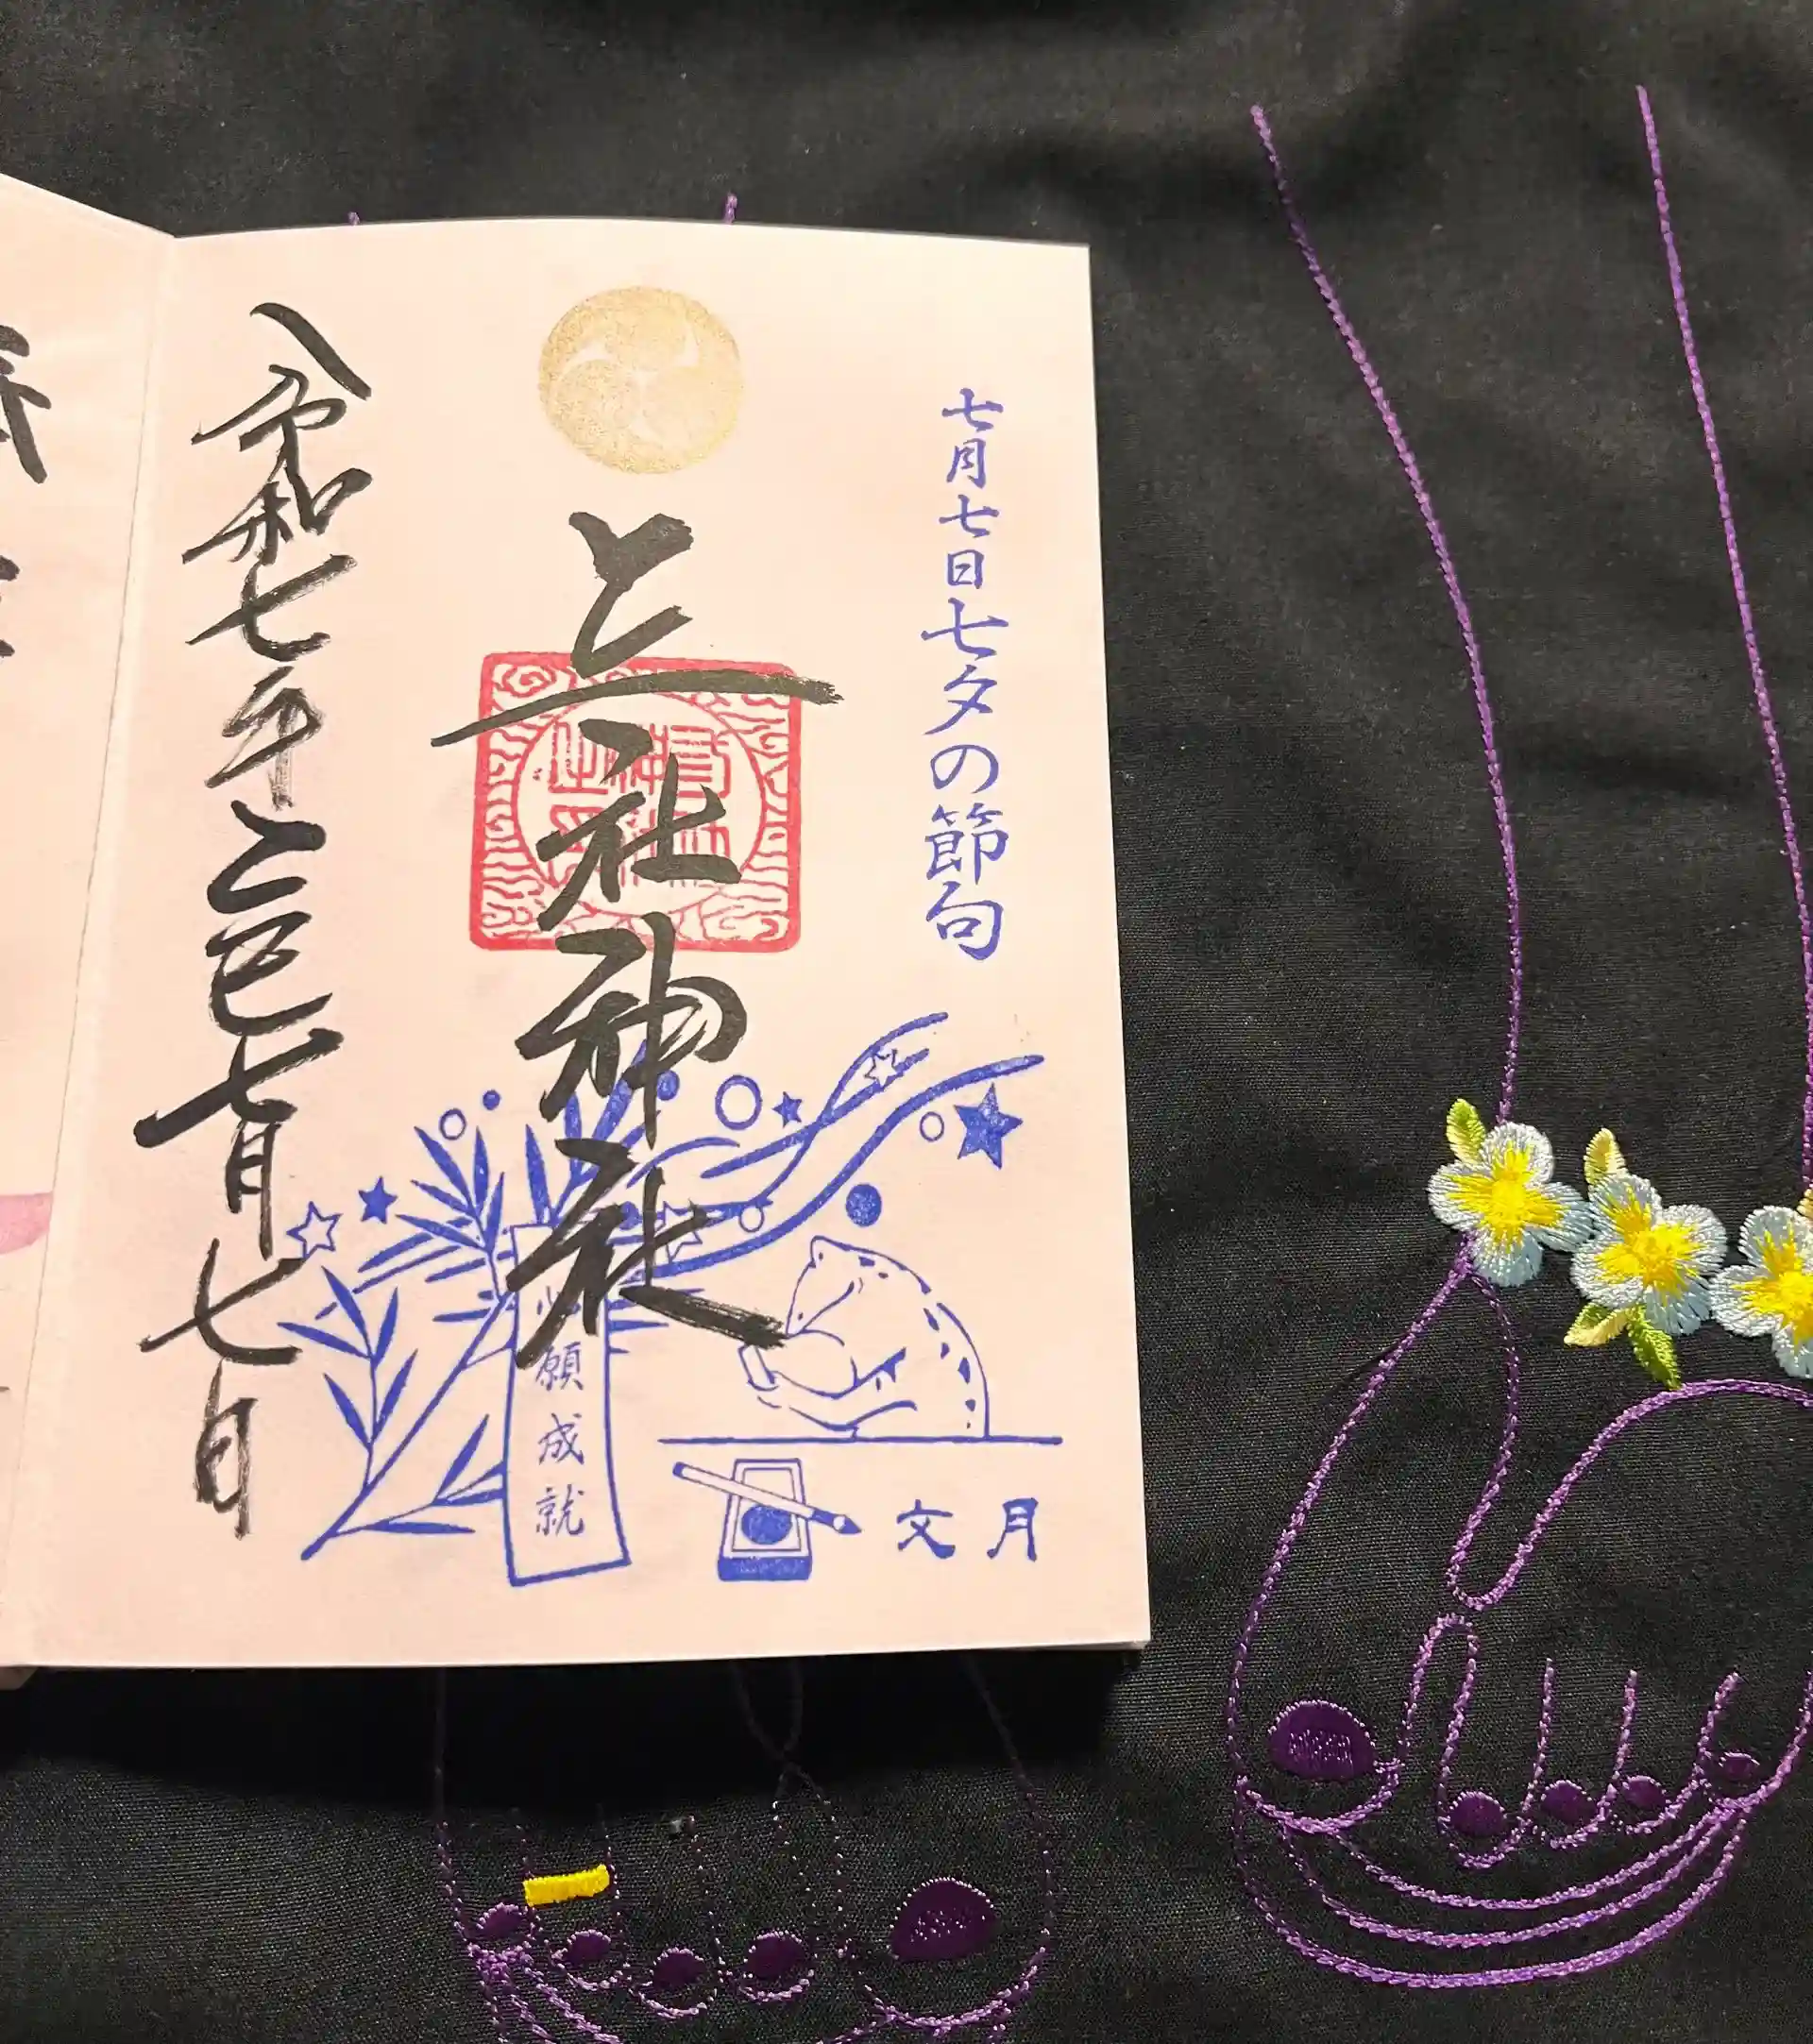 七月七日七夕の節句
社神社
令和七年乙巳七月七日
願成就
文月